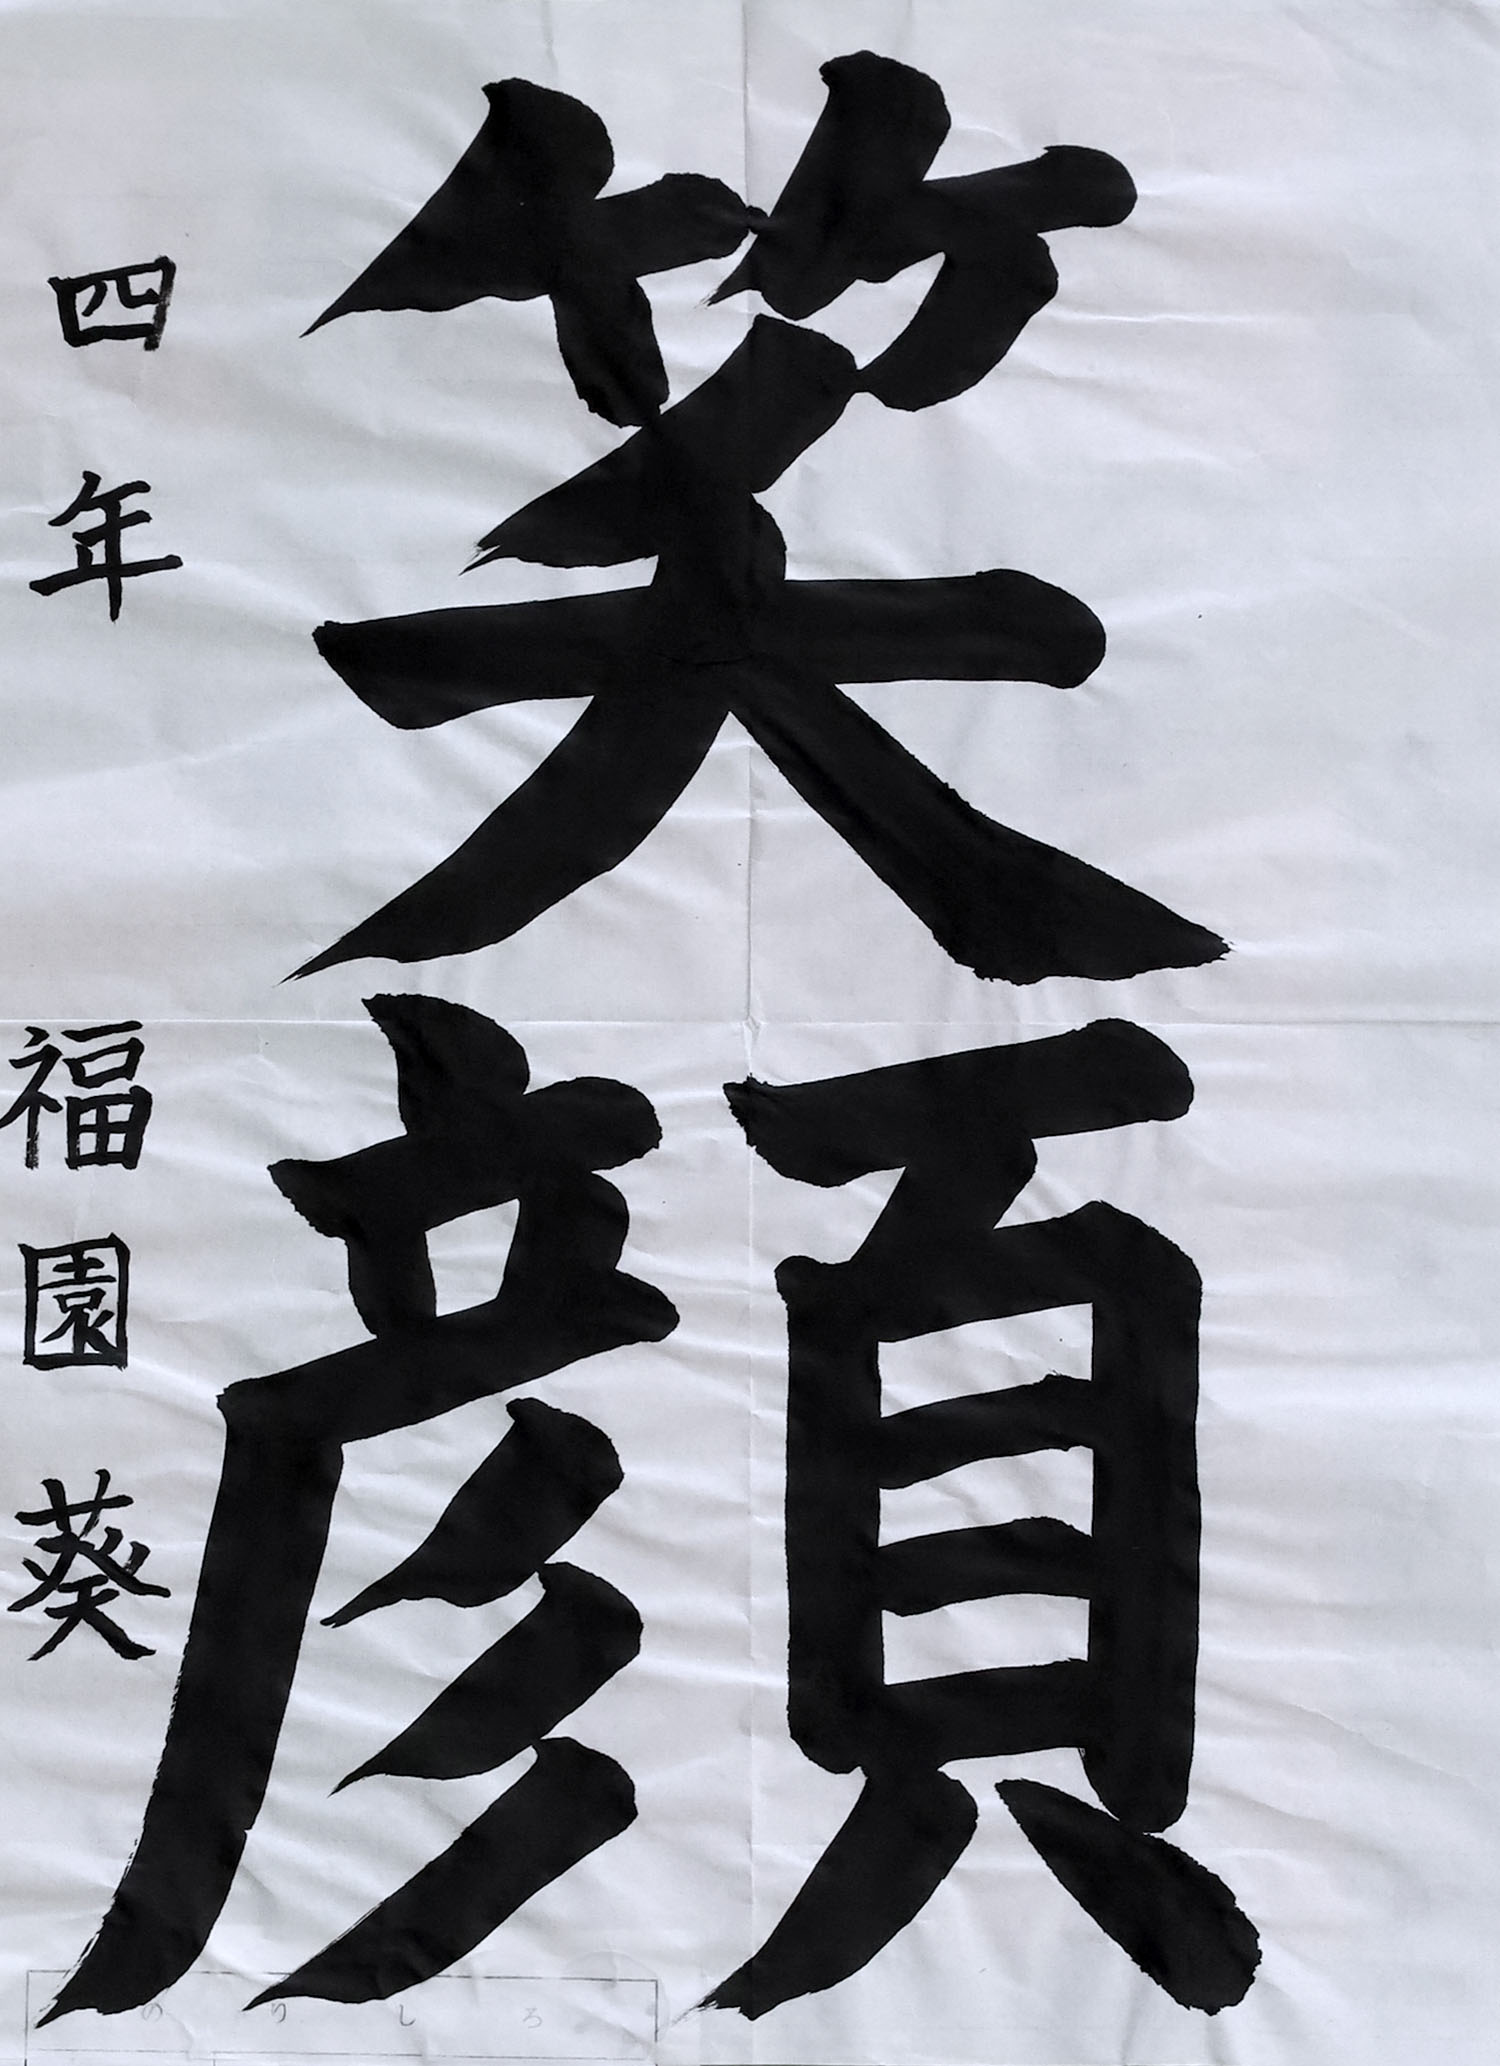 笑顔
四年 福園葵
のりしろ